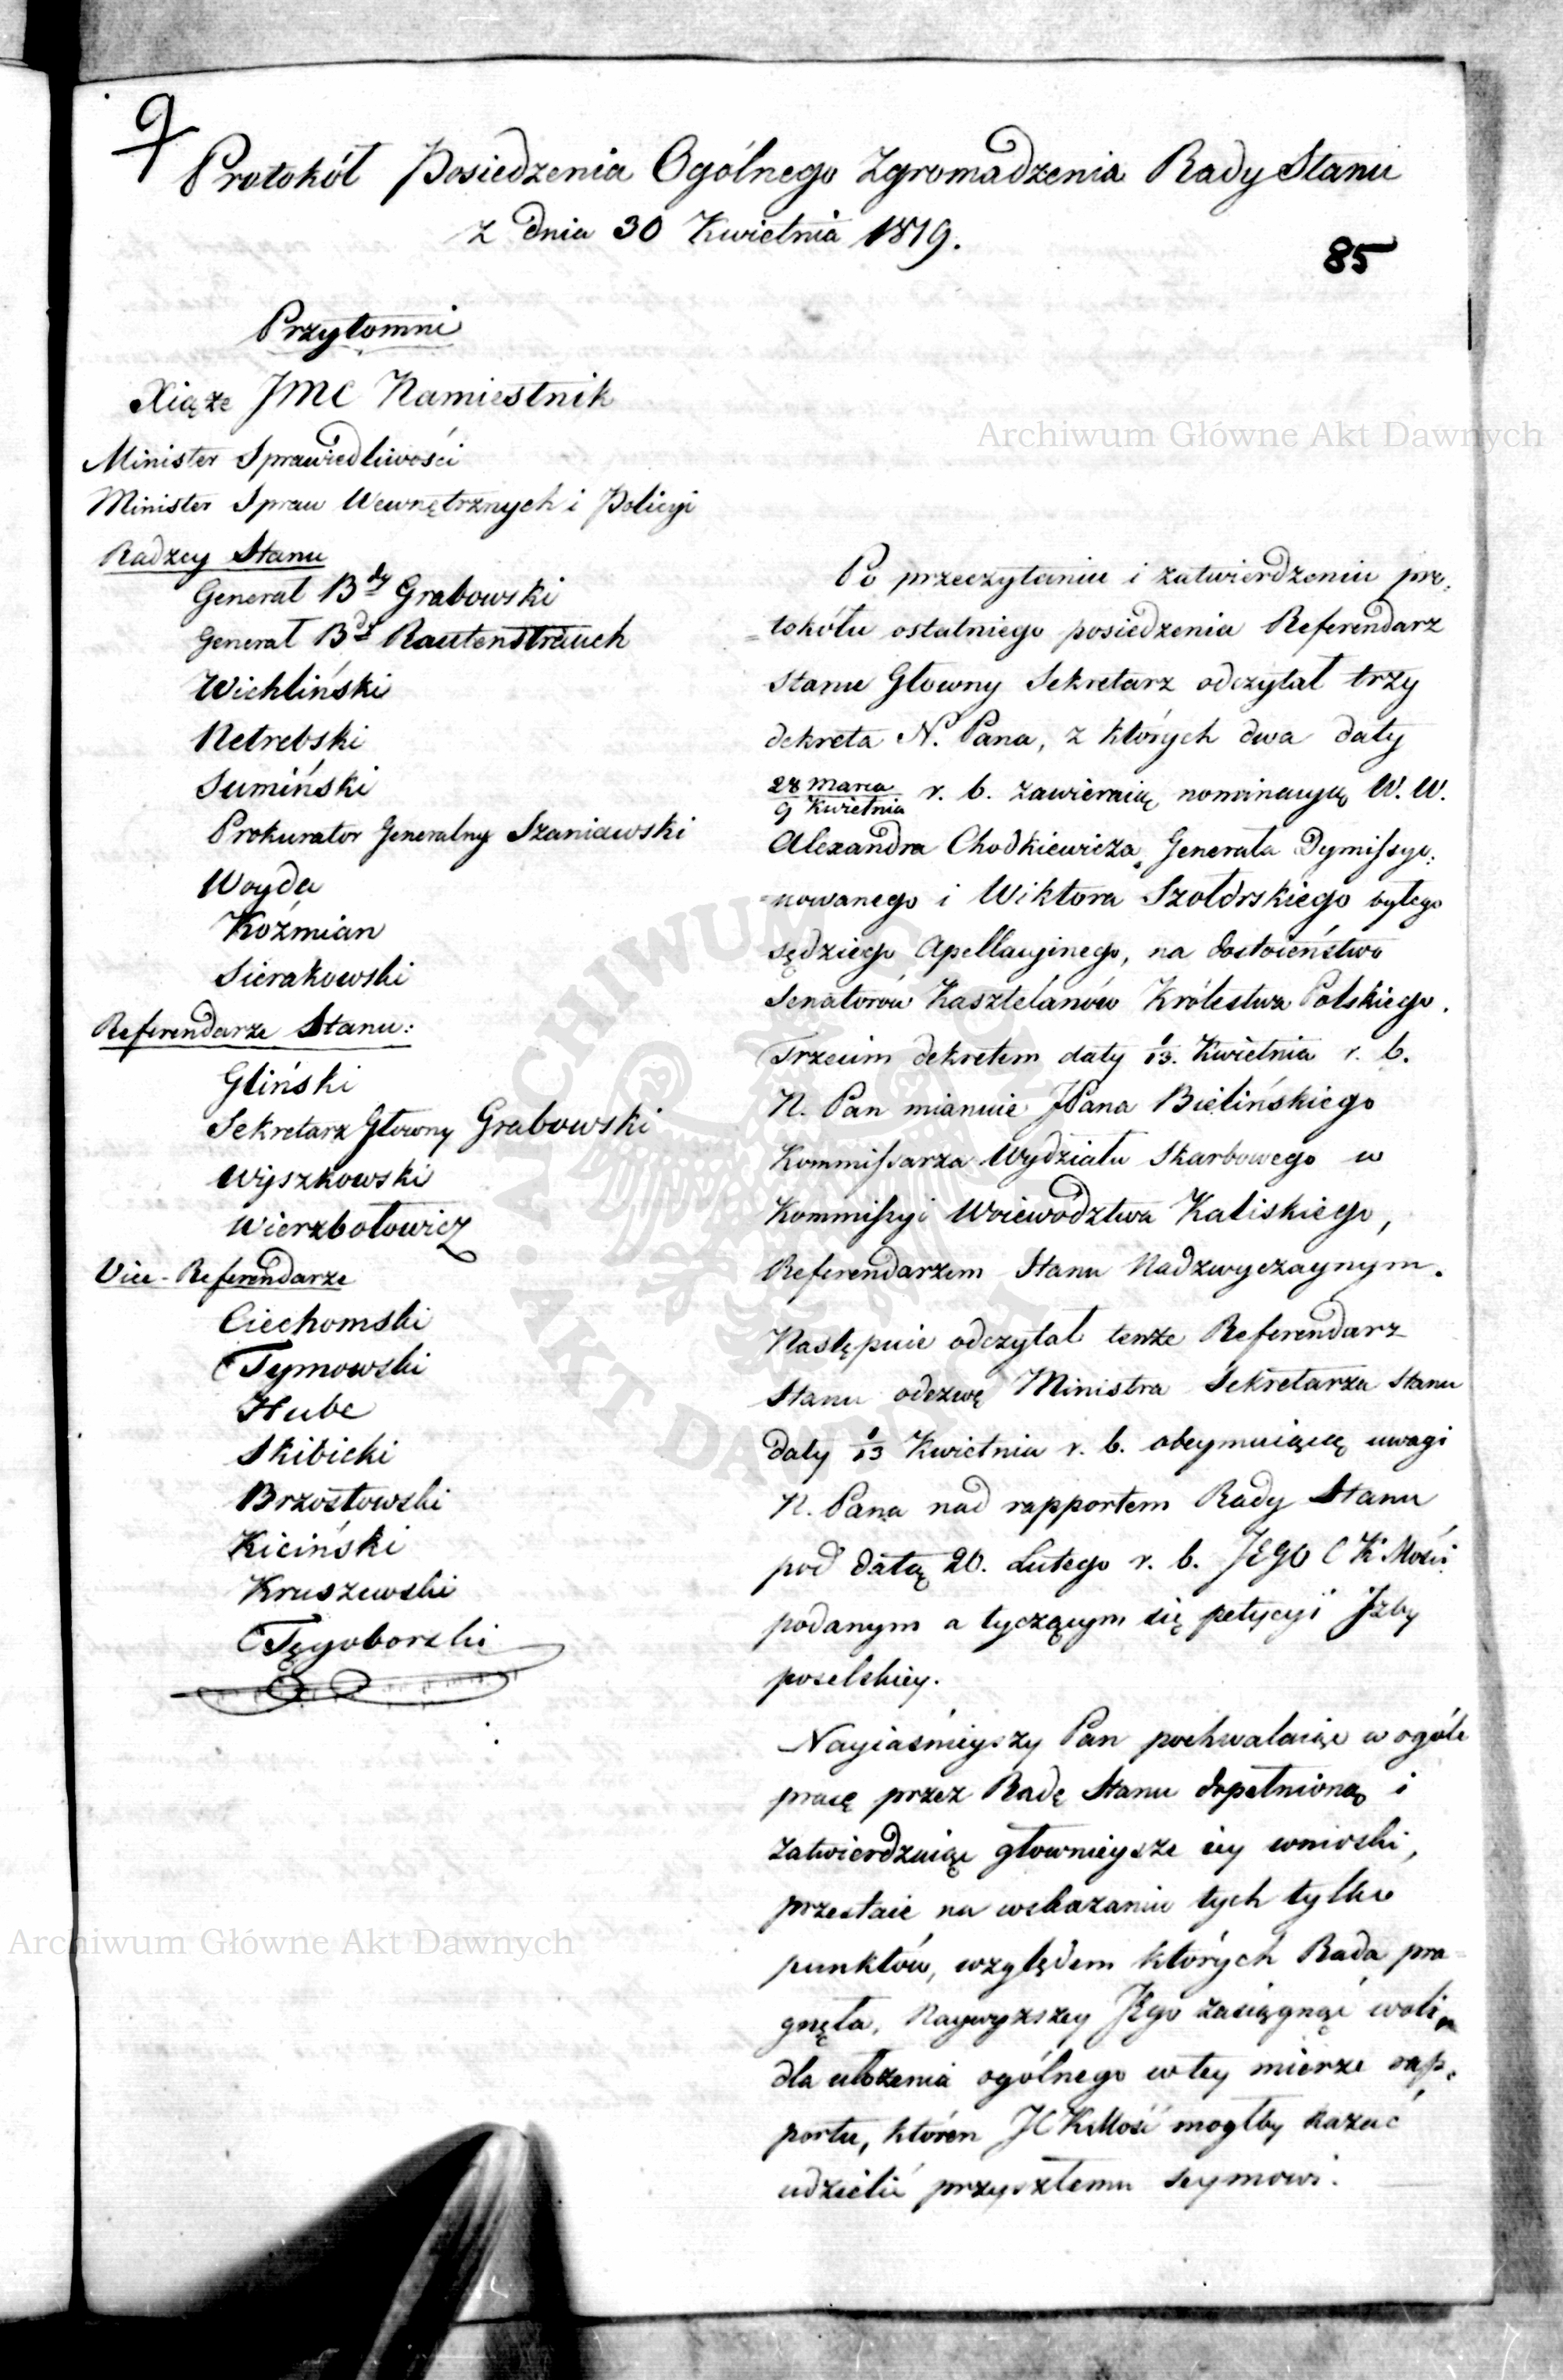 9
Protokół Posiedzenia Ogólnego Zgromadzenia Rady Stanu
z dnia 30 Kwietnia 1819.
85
Przytomni
Xiąże JMC Namiestnik
Minister Sprawiedliwości
Minister Spraw Wewnętrznych i Policyi
Radzcy Stanu
Generał Bdy Grabowski
Generał Bdy Rautenstrauch
Wichliński
Netrebski
Sumiński
Prokurator Generalny Szaniawski
Woyda
Koźmian
Sierakowski
Referendarze Stanu:
Gliński
Sekretarz Głowny Grabowski
Wyszkowski
Wierzbołowicz
Vice-Referendarze
Ciechomski
Tymowski
Hube
Skibicki
Brzostowski
Kiciński
Kruszewski
Tęgoborski
Po przeczytaniu i zatwierdzeniu pro-
=tokółu ostatniego posiedzenia Referendarz
Stanu Głowny Sekretarz odczytał trzy
dekreta N. Pana, z których dwa daty
28 Marca / 9 Kwietnia r. b. zawieraią nominacyą W. W.
Alexandra Chodkiewicza, Generała Dymissyo-
=nowanego i Wiktora Szołdrskiego byłego
sędziego Apellacyinego, na dostoieństwo
Senatorów Kasztelanów Królestwa Polskiego.
Trzecim dekretem daty 1/13. Kwietnia r. b.
N. Pan mianuie JPana Bielińskiego
Kommissarza Wydziału Skarbowego w
Kommissyi Woiewodztwa Kaliskiego,
Referendarzem Stanu Nadzwyczaynym.
Następnie odczytał tenże Referendarz
Stanu odezwę Ministra Sekretarza Stanu
daty 1/13 Kwietnia r. b. obeymuiącą uwagi
N. Pana nad rapportem Rady Stanu
pod datą 20. Lutego r. b. JEGO C K Mości
podanym a tyczącym się petycyi Jzby
poselskiey.
Nayiaśnieyszy Pan pochwalaiąc w ogóle
pracę przez Radę Stanu dopełnioną i
zatwierdzaiąc głownieysze iey wnioski,
przestaie na wskazaniu tych tylko
punktów, względem których Rada pra-
gnęła, Naywyższey Jego zasiągnąć woli,
dla ułożenia ogólnego w tey mierze rap-
portu, któren JCKMość mogłby kazać
udzielić przyszłemu seymowi.
Archiwum Główne Akt Dawnych
Archiwum Główne Akt Dawnych